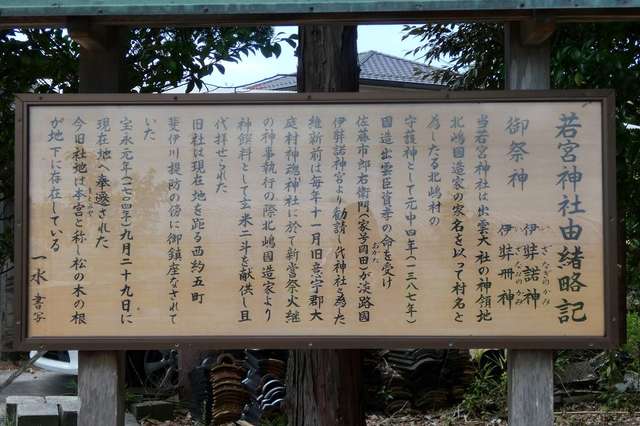 若宮神社由緒略記
御祭神
いざなぎのかみ
伊弉諾神
いざなみのかみ
伊弉冊神
当若宮神社は出雲大社の神領地
北嶋国造家の家名を以って村名と
為したる北嶋村の
守護神として元中四年(一三八七年)
国造出雲臣資孝の命を受け
佐藤市郎右衛門(家号岡田)が淡路国
おかた
伊弉諾神宮より勧請し氏神社と為した
維新前は毎年十一月旧意宇郡大
庭村神魂神社に於て新嘗祭火継
の神事執行の際北嶋国造家より
神餝料として玄米二斗を献供し且
代拝せられた
旧社は現在地を距る西約五町
斐伊川提防の傍に御鎮座なされて
いた
宝永元年(一七〇四年)九月二十九日に
現在地へ奉遷された
今旧社地は本宮と称し松の木の根
もとみや
が地下に存在している
一水 書写